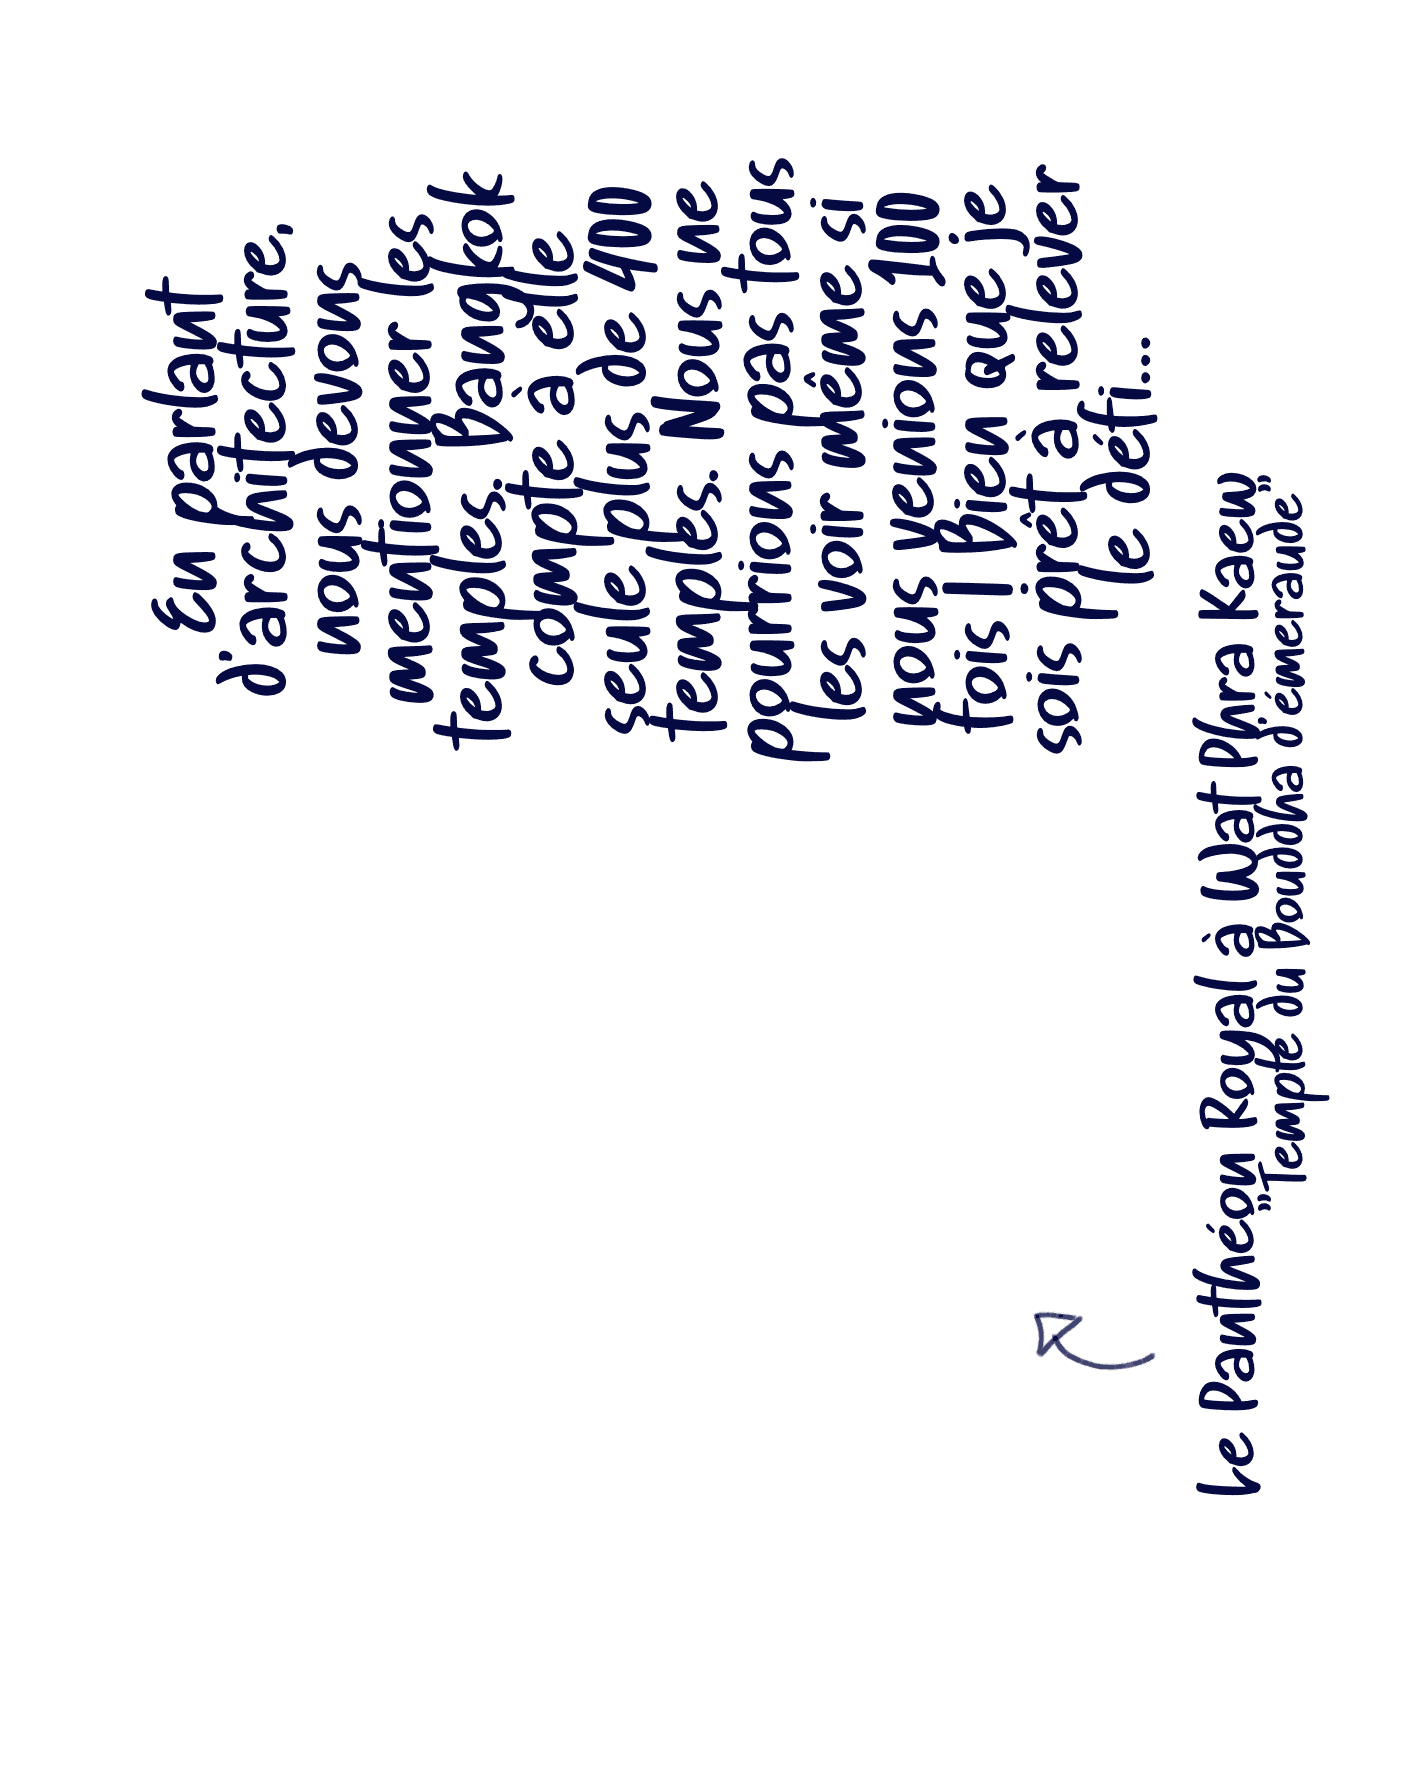 En parlant
d'architecture,
nous devons
mentionner les
temples. Bangkok
compte à elle
seule plus de 400
temples. Nous ne
pourrions pas tous
les voir même si
nous venions 100
fois ! Bien que je
sois prêt à relever
le défi...
Le Panthéon Royal à Wat Phra Kaew
"Temple du Bouddha d'émeraude"